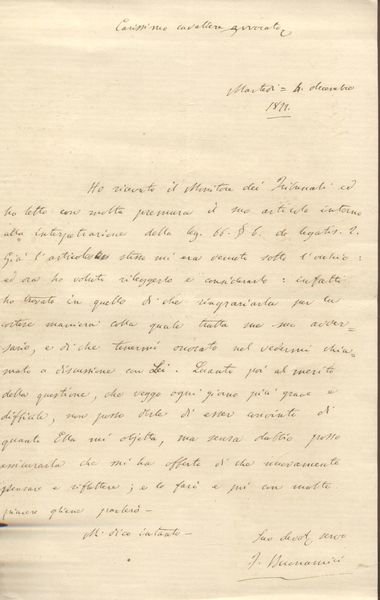 Carissimo cavaliere avvocato
Martedì = 4 decembre
18
Ho ricevuto il Monitore dei Tribunali ed
ho letto con molta premura il suo articolo intorno
alla Interpetrazione della leg. 66. § 6. de legatis. 2.
Già l'articolo stesso mi era venuto sotto l'occhio:
ed ora ho voluto rileggerlo e considerarlo: infatti
ho trovato in quello di che ringraziarla per la
cortese maniera colla quale tratta me suo avver-
sario, e di che tenermi onorato nel vedermi chia-
mato a discussione con Lei. Quanto poi al merito
della questione, che veggo ogni giorno più grave e
difficile, non posso dirle di esser convinto di
quanto Ella mi objetta, ma senza dubbio posso
assicurarla che mi ha offerto di che nuovamente
pensare e riflettere; e lo farò e poi con molto
piacere gliene parlerò -
Mi dico intanto -
Suo devot. servo
F. Buonamici